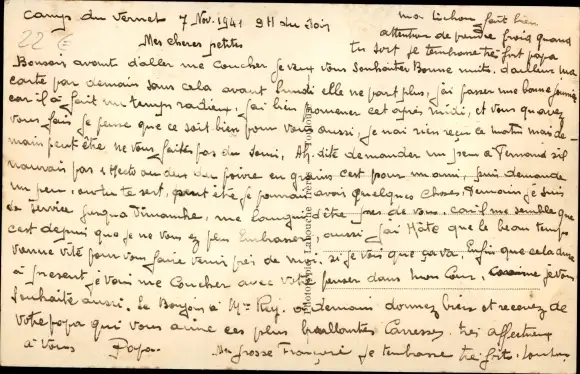 Camp du Vernet 7 Nov. 1941 9 H du soir
ma Lichon fait bien
attention de prendre froid quand
tu sort je tembrasse très fort papa
22 €
Mes cheres petites
Bonsoir avant d'aller me Coucher je veux vous Souhaiter Bonne nuits. d'ailleur ma
carte par demain sans cela avant lundi elle ne part plus, j'ai passer une bonne journée
car il à fait un temps radieux, j'ai bien promener cet après midi, et vous qu'avez
vous fais je pense que ce soit bien pour vous aussi, je nai rien reçu ce matin mais de-
main peut être ne vous faites pas du Souci. Ah. dite demander un peu a Fernand s'il
naurais pas 1 Hecto ou deux du poivre en grains c'est pour un ami, jen demande
un peu, peut être je pourrais avoir quelques choses. Demain je suis
de Service jusqua Dimanche, me languis d'être près de vous, car il me semble que
c'est depuis que je ne vous ez plus Embrasser, aussi j'ai Hâte que le beau temps
vienne vite pour vous faire venir près de moi. si je vois que ça va. Enfin que cela dure
à présent je vais me Coucher avec votre penser dans mon Cœur, Comme je vous
Souhaite aussi. Le Bonjour à Mme Rey. a demain donnez bien et recevez de
votre papa qui vous aime ces plus brullantes Caresses. très affectueux
à vous Papa. Ma grosse Françoise je tembrasse très forts.
Photographie Labouche Frères Toulouse